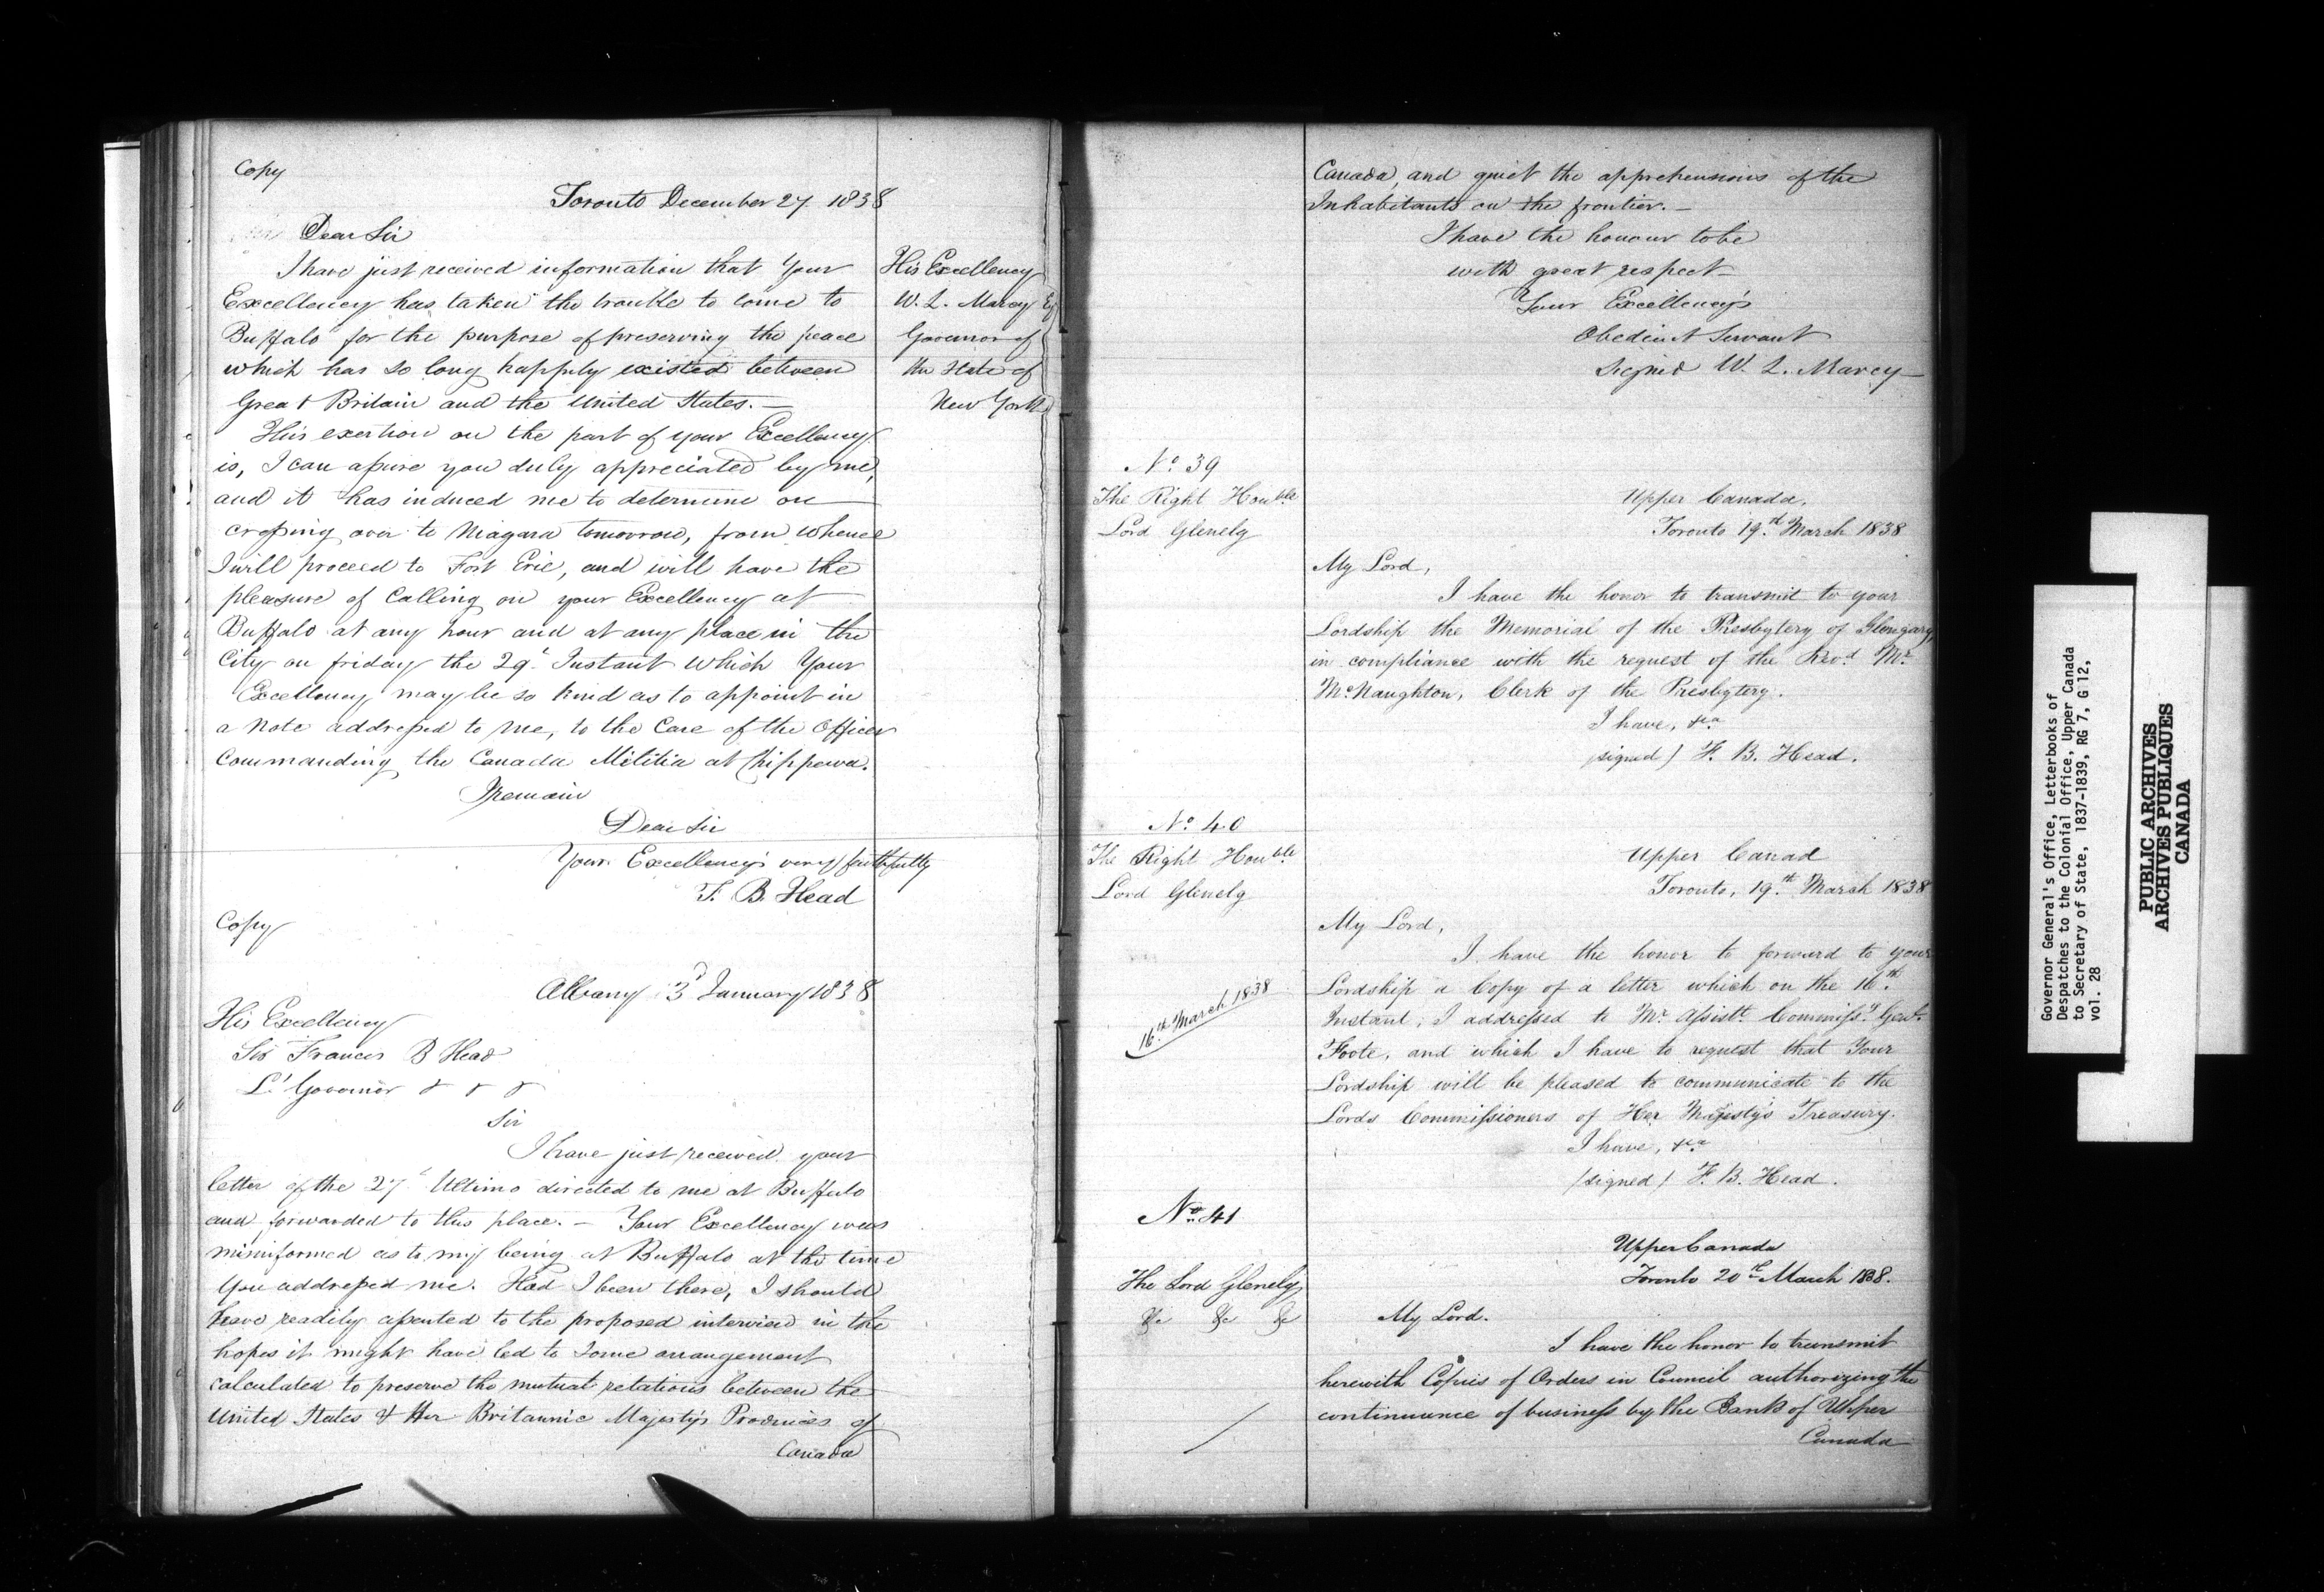 Copy
Toronto December 27 1838
Dear Sir
I have just received information that Your
Excellency has taken the trouble to come to
Buffalo for the purpose of preserving the peace
which has so long happily existed between
Great Britain and the United States. —
His Excellency
W. L. Marcy Esq
Governor of
the State of
New York
This exertion on the part of your Excellency
is, I can assure you duly appreciated by me,
and it has induced me to determine on
crossing over to Niagara tomorrow, from whence
I will proceed to Fort Erie, and will have the
pleasure of Calling on your Excellency at
Buffalo at any hour and at any place in the
City on friday the 29t Instant which Your
Excellency may be so kind as to appoint in
a Note addressed to me, to the Care of the Officer
Commanding the Canada Militia at Chippewa.
I remain
Dear Sir
Your Excellency's very faithfully
F. B. Head
Copy
Albany 3d January 1838
His Excellency
Sir Francis B Head
Lt Governor & & &
Sir
I have just received your
letter of the 27t Ultimo directed to me at Buffalo
and forwarded to this place. — Your Excellency was
misinformed as to my being at Buffalo at the time
you addressed me. Had I been there, I should
have readily assented to the proposed interview in the
hopes it might have led to some arrangement
calculated to preserve the mutual relations between the
United States & Her Britannic Majesty's Provinces of
Canada
Canada, and quiet the apprehensions of the
Inhabitants on the frontier. —
I have the honour to be
with great respect
Your Excellency's
Obedient Servant
Signed W. L. Marcy
No. 39
The Right Honble
Lord Glenelg
Upper Canada,
Toronto 19th March 1838
My Lord,
I have the honor to transmit to your
Lordship the Memorial of the Presbytery of Glengary,
in compliance with the request of the Revd Mr
McNaughton, Clerk of the Presbytery.
I have, &ca
(signed) F. B. Head.
No. 40
The Right Honble
Lord Glenelg
Upper Canad
Toronto, 19th March 1838
My Lord,
I have the honor to forward to your
Lordship a Copy of a letter which on the 16th
Instant, I addressed to Mr Assistt Commissy Genl
Foote, and which I have to request that Your
Lordship will be pleased to communicate to the
Lords Commissioners of Her Majesty's Treasury.
16th March 1838
I have, &ca
(signed) F. B. Head.
No. 41
The Lord Glenelg
&c &c &c
Upper Canada
Toronto 20th March 1838.
My Lord.
I have the honor to transmit
herewith Copies of Orders in Council authorizing the
continuance of business by the Bank of Upper
Canada
Governor General's Office, Letterbooks of
Despatches to the Colonial Office, Upper Canada
to Secretary of State, 1837-1839, RG 7, G 12,
vol. 28
PUBLIC ARCHIVES
ARCHIVES PUBLIQUES
CANADA